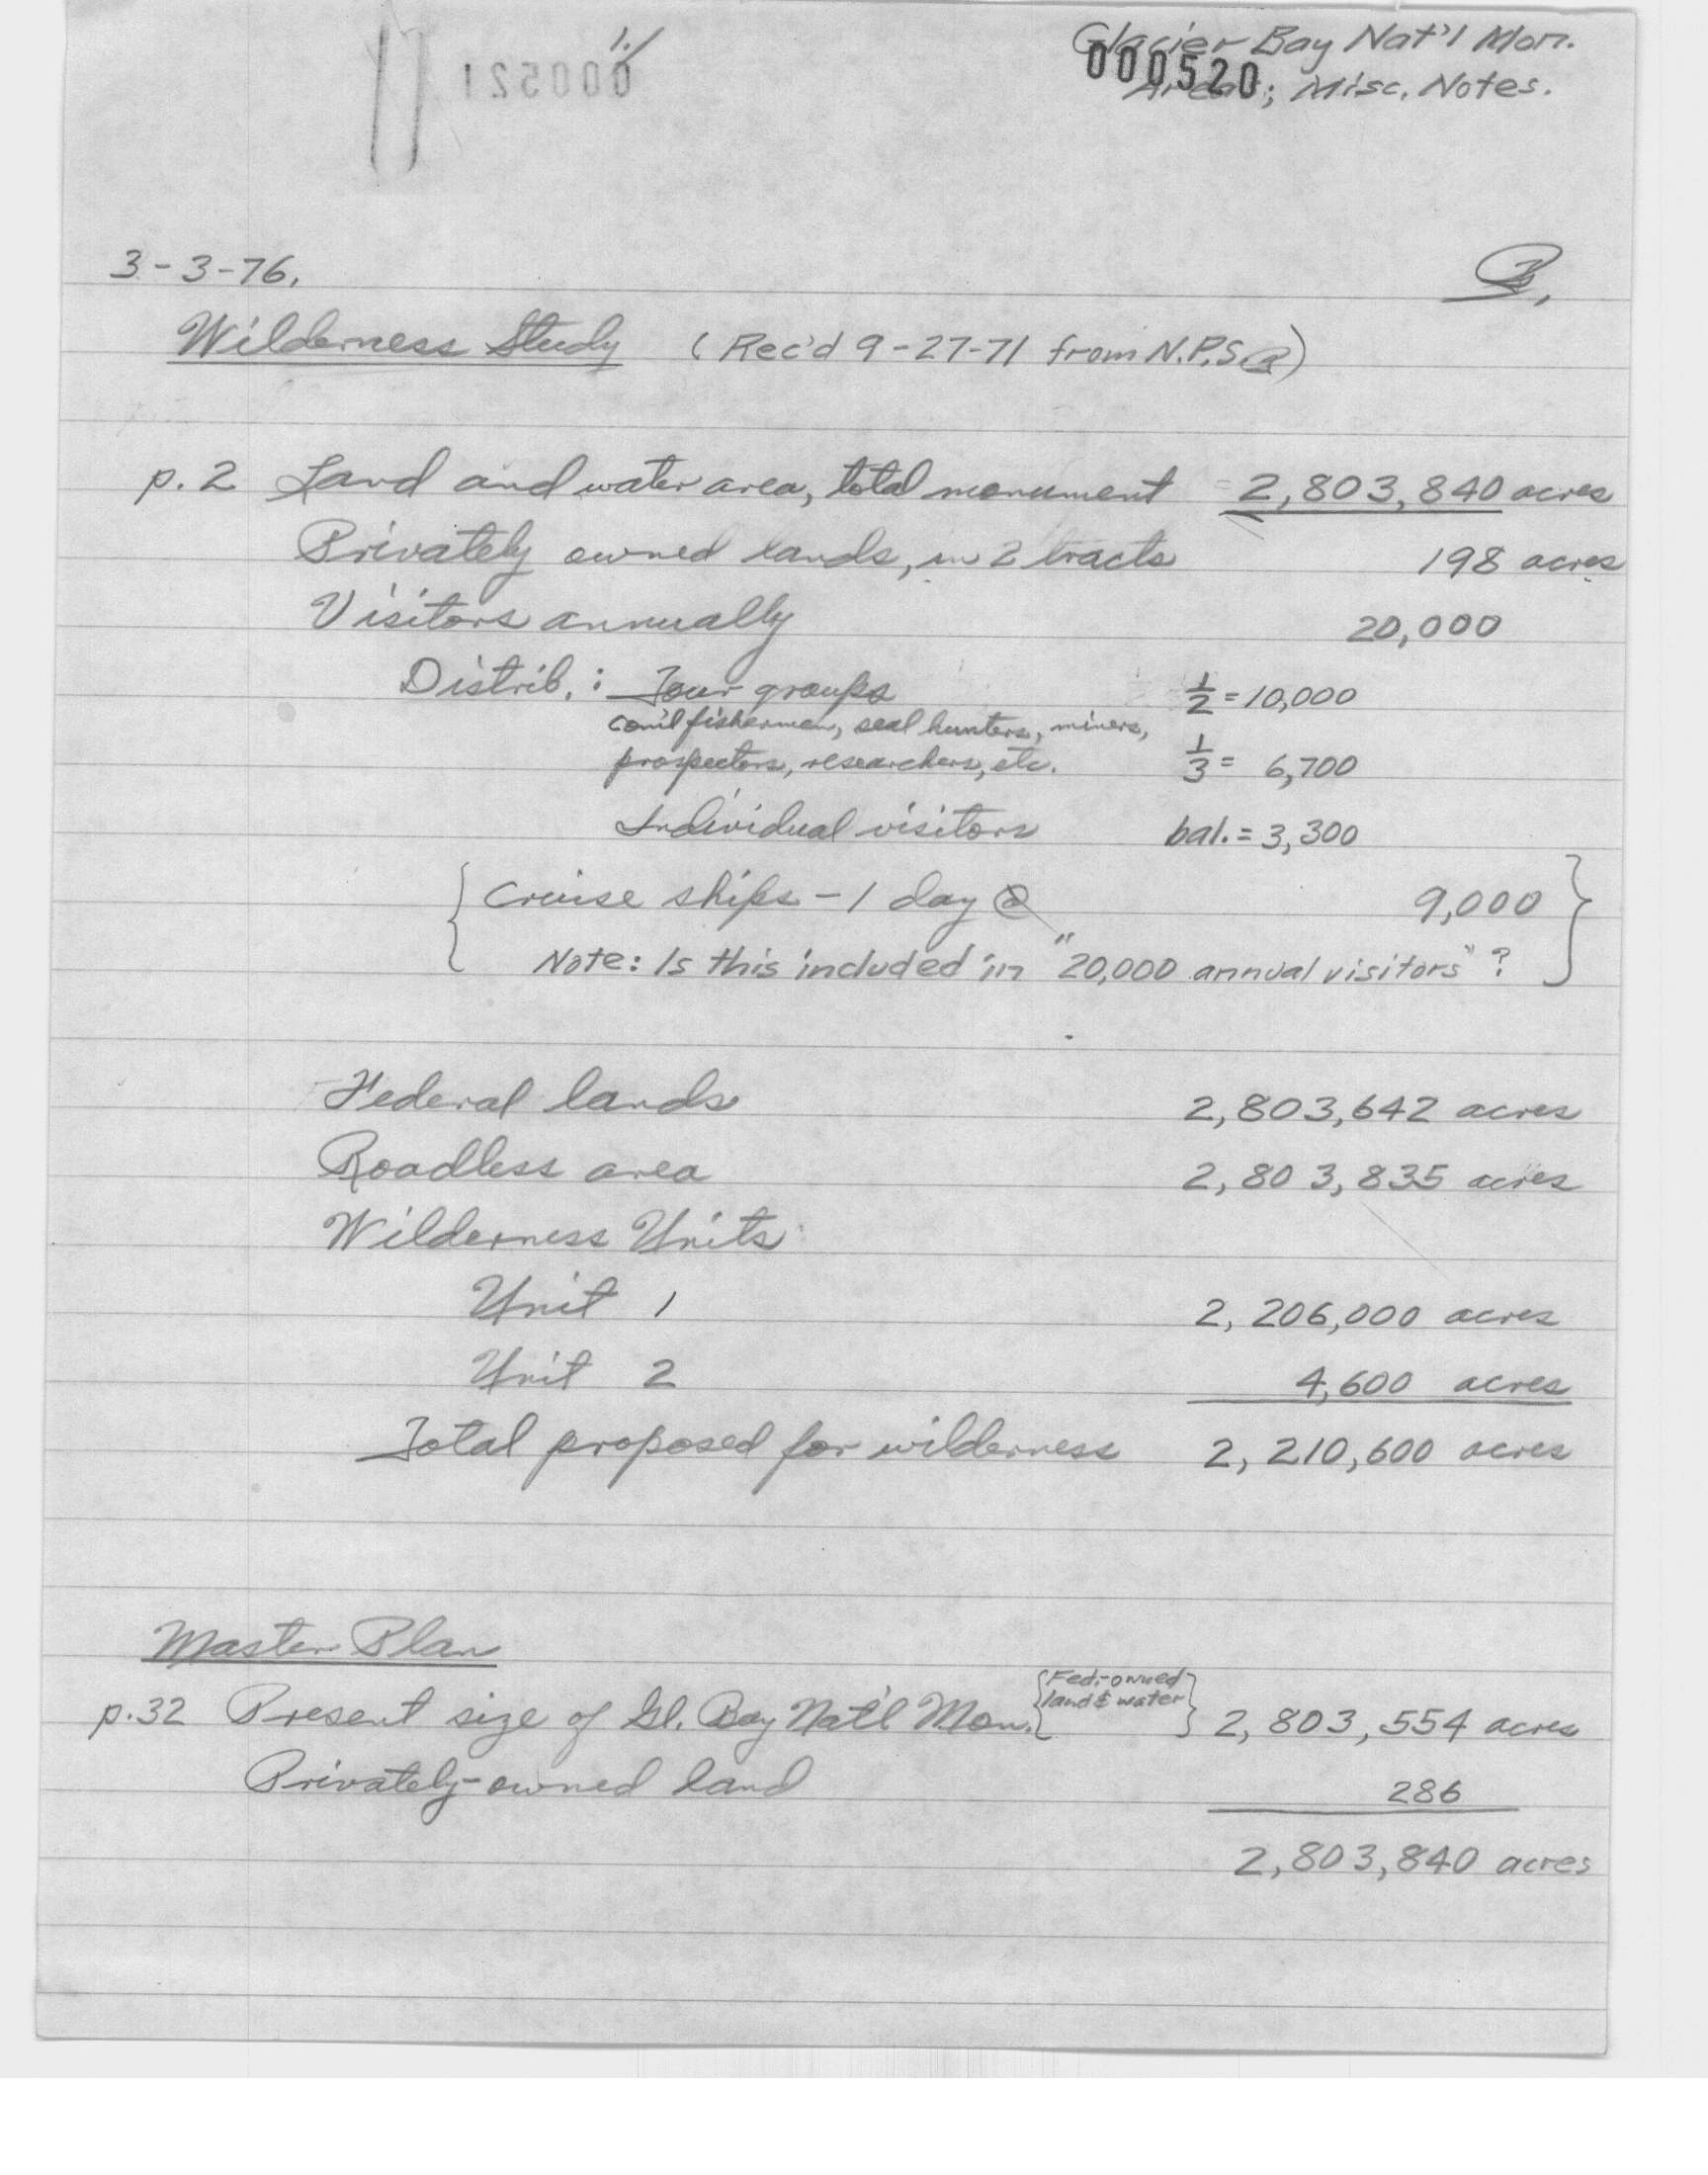 1.
000521
Glacier Bay Nat'l Mon.
000520
Areas; Misc. Notes.
3-3-76.
Wilderness Study (Rec'd 9-27-71 from N.P.S.)
p.2 Land and water area, total monument 2,803,840 acres
Privately owned lands, in 2 tracts 198 acres
Visitors annually 20,000
Distrib.: Tour groups 1/2 = 10,000
com'l fishermen, seal hunters, miners,
prospectors, researchers, etc. 1/3 = 6,700
Individual visitors bal. = 3,300
{ Cruise ships - 1 day @ 9,000 }
Note: Is this included in "20,000 annual visitors"?
Federal lands 2,803,642 acres
Roadless area 2,803,835 acres
Wilderness Units
Unit 1 2,206,000 acres
Unit 2 4,600 acres
Total proposed for wilderness 2,210,600 acres
Master Plan
p.32 Present size of Gl. Bay Nat'l Mon. {Fed.-owned land & water} 2,803,554 acres
Privately-owned land 286
2,803,840 acres